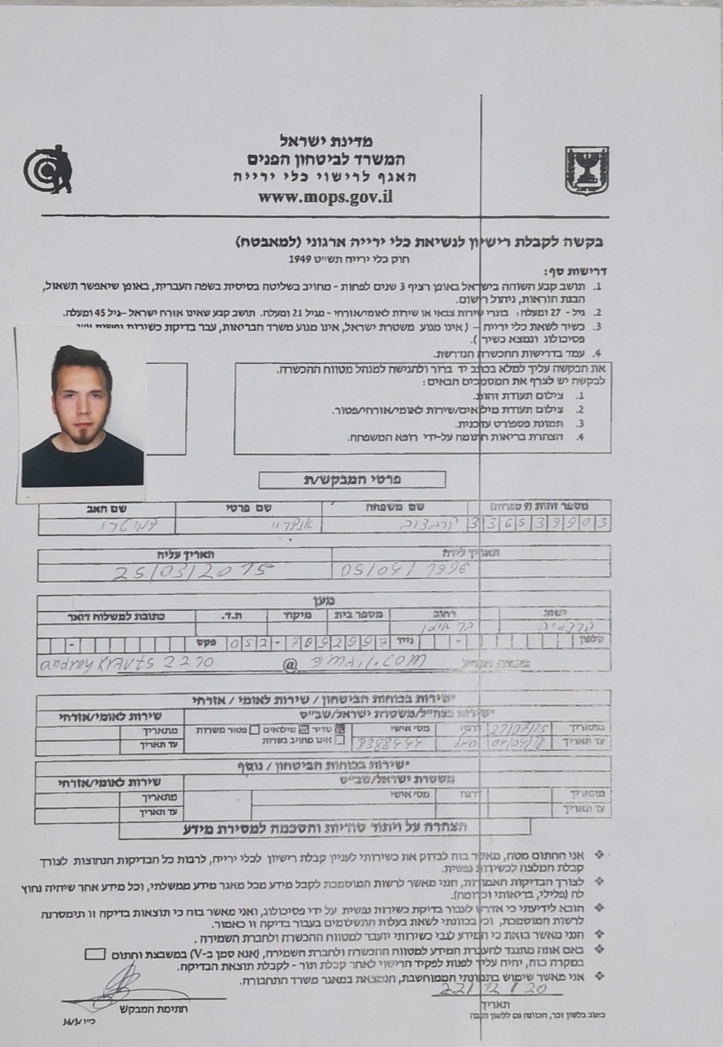 מדינת ישראל
המשרד לביטחון הפנים
האגף לרישוי כלי ירייה
www.mops.gov.il
בקשה לקבלת רישיון לנשיאת כלי ירייה ארגוני (למאבטח)
חוק כלי ירייה תש״ט 1949
דרישות סף:
1. תושב קבע השוהה בישראל באופן רציף 3 שנים לפחות - מחויב בשליטה בסיסית בשפה העברית, באופן שיאפשר תשאול,
הבנת הוראות, ניהול רישום.
2. גיל - 27 ומעלה: בוגרי שירות צבאי או שירות לאומי/אזרחי - מגיל 21 ומעלה. תושב קבע שאינו אזרח ישראל - גיל 45 ומעלה.
3. כשיר לשאת כלי ירייה - ( אינו מנוע משטרת ישראל, אינו מנוע משרד הבריאות, עבר בדיקת כשירות
פסיכולוג ונמצא כשיר ).
4. עמד בדרישות ההכשרה הנדרשת.
את הבקשה עליך למלא בכתב יד ברור ולהגישה למנהל מטווח ההכשרה.
לבקשה יש לצרף את המסמכים הבאים:
1. צילום תעודת זהות.
2. צילום תעודת מילואים/שירות לאומי/אזרחי/פטור.
3. תמונת פספורט עדכנית.
4. הצהרת בריאות חתומה על-ידי רופא המשפחה.
פרטי המבקש/ת
מספר זהות (9 ספרות) שם משפחה שם פרטי שם האב
336539903 אנדריי
תאריך לידה תאריך עליה
05/04/1996 25/03/2015
מען
ישוב רחוב מספר בית מיקוד ת.ד. כתובת למשלוח דואר
הרצליה בר אילן
טלפון נייד 052-7692997 פקס
andreykravts2210 @ gmail.com
שירות בכוחות הביטחון / שירות לאומי / אזרחי
שירות בצה״ל/משטרת ישראל/שב״ס שירות לאומי/אזרחי
מתאריך דרגה מס׳ אישי סדיר מילואים פטור משרות מתאריך
עד תאריך 8388444 אינו מחויב בשרות עד תאריך
שירות בכוחות הביטחון / נוסף
משטרת ישראל/שב״ס שירות לאומי/אזרחי
מתאריך דרגה מס׳ אישי מתאריך
עד תאריך עד תאריך
הצהרה על ויתור סודיות והסכמה למסירת מידע
❖ אני החתום מטה, מאשר בזה לבדוק את כשירותי לעניין קבלת רישיון לכלי ירייה, לרבות כל הבדיקות הנחוצות לצורך
קבלת המלצה לכשירות נפשית.
❖ לצורך הבדיקות האמורות, הנני מאשר לרשות המוסמכת לקבל מידע מכל מאגר מידע ממשלתי, וכל מידע אחר שיהיה נחוץ
לה (פלילי, בריאותי וכדומה).
❖ הובא לידיעתי כי אדרש לעבור בדיקת כשירות נפשית על ידי פסיכולוג, ואני מאשר בזה כי תוצאות בדיקה זו תימסרנה
לרשות המוסמכת, וכי בכוונתי לשאת בעלות התשלומים בעבור בדיקה זו כאמור.
❖ הנני מאשר בזאת כי המידע לגבי כשירותי יועבר למטווח ההכשרה ולחברת השמירה.
❖ באם אתה מתנגד להעברת המידע למטווח ההכשרה ולחברת השמירה, (אנא סמן ב-V) במשבצת וחתום
במקרה כזה, יהיה עליך לפנות לפקיד הרישוי לאחר קבלת תור - לקבלת תוצאת הבדיקה.
❖ אני מאשר שימוש בתמונתי הממוחשבת, הנמצאת במאגר משרד התחבורה.
22/12/20
תאריך חתימת המבקש
כתוב בלשון זכר, הכוונה גם ללשון נקבה